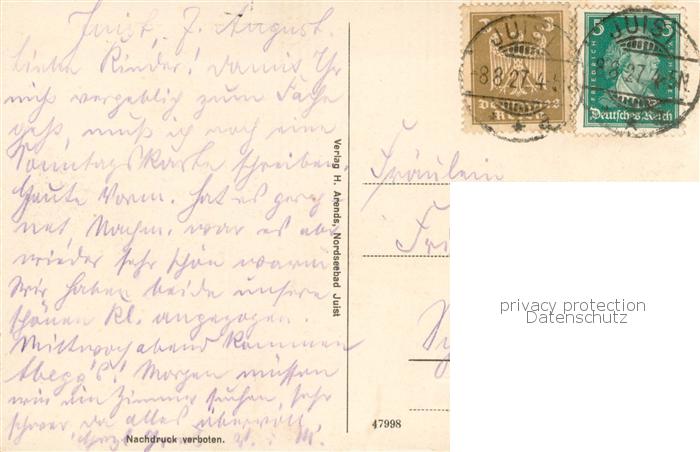 Juist, 7. August.
Liebe Kinder! damit Ihr
nicht vergeblich zum Fache
geht, muß ich noch eine
Sonntagskarte schreiben.
Heute Vorm. hat es gereg
net, Nachm. war es aber
wieder sehr schön warm
Wir haben beide unsere
schönen Kl. angezogen.
Mittwochabend kommen
Abegg's! Morgen müssen
wir ein Zimmer suchen, sehr
schwer da alles überfüllt
Herzl. Gruß V. u. M.
Nachdruck verboten.
Verlag H. Arends, Nordseebad Juist
47998
JUIST
-8.8.27.4-5N
3 3
Deutsches
Reich
JUIST
8.8.27.4-5N
5 5
FRIEDRICH
Deutsches Reich
Fräulein
privacy protection
Datenschutz